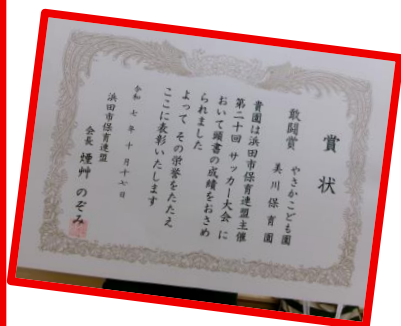 賞状
敢闘賞
やさかこども園
美川保育園
貴園は浜田市保育連盟主催
第二十回 サッカー大会 に
おいて頭書の成績をおさめ
られました
よって その栄誉をたたえ
ここに表彰いたします
令和 七年 十月十七日
浜田市保育連盟
会長 煙艸 のぞみ